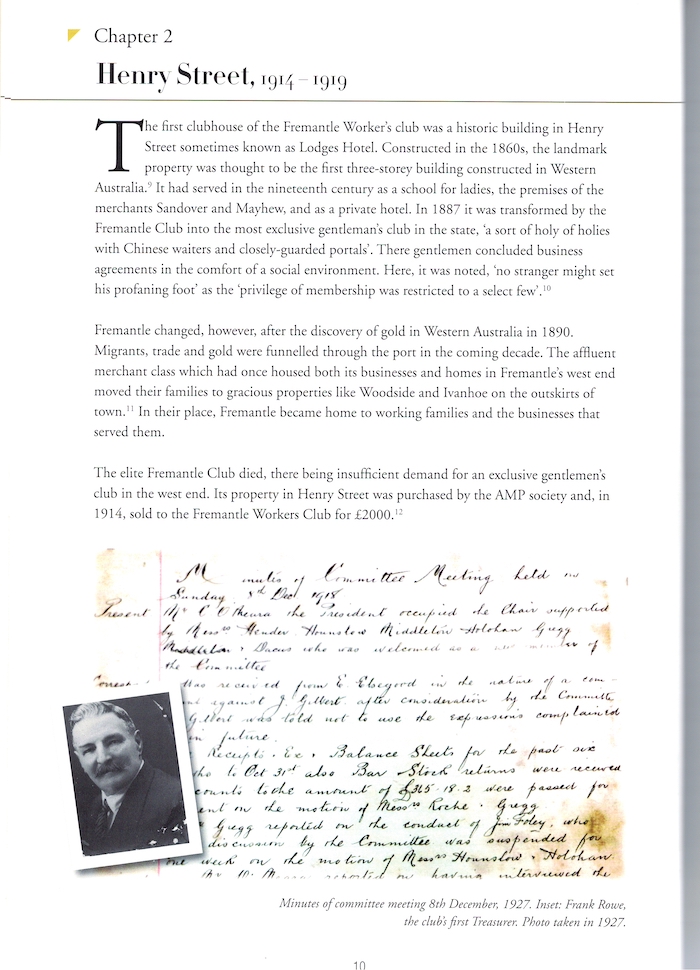 Chapter 2
Henry Street, 1914 – 1919
The first clubhouse of the Fremantle Worker's club was a historic building in Henry
Street sometimes known as Lodges Hotel. Constructed in the 1860s, the landmark
property was thought to be the first three-storey building constructed in Western
Australia.⁹ It had served in the nineteenth century as a school for ladies, the premises of the
merchants Sandover and Mayhew, and as a private hotel. In 1887 it was transformed by the
Fremantle Club into the most exclusive gentleman's club in the state, ‘a sort of holy of holies
with Chinese waiters and closely-guarded portals’. There gentlemen concluded business
agreements in the comfort of a social environment. Here, it was noted, ‘no stranger might set
his profaning foot’ as the ‘privilege of membership was restricted to a select few’.¹⁰
Fremantle changed, however, after the discovery of gold in Western Australia in 1890.
Migrants, trade and gold were funnelled through the port in the coming decade. The affluent
merchant class which had once housed both its businesses and homes in Fremantle's west end
moved their families to gracious properties like Woodside and Ivanhoe on the outskirts of
town.¹¹ In their place, Fremantle became home to working families and the businesses that
served them.
The elite Fremantle Club died, there being insufficient demand for an exclusive gentlemen's
club in the west end. Its property in Henry Street was purchased by the AMP society and, in
1914, sold to the Fremantle Workers Club for £2000.¹²
Minutes of Committee Meeting held on
Sunday 8th Dec 1918
Present Mr C the President occupied the Chair supported
by Messrs Hounslow Middleton Holohan Gregg
who was welcomed as a new member of
the Committee
Was received from E. in the nature of a com-
against J. Gilbert after consideration by the Committee
Gilbert was told not to use the expressions complained
in future.
Receipts. Ex. Balance Sheets for the past six
to Oct 31st also Bar Stock returns were received
to the amount of £315.18.2 were passed for
on the motion of Messrs Roche. Gregg
Gregg reported on the conduct of Jim Foley, who
discussion by the Committee was suspended for
one week on the motion of Messrs Hounslow Holohan.
reported on having interviewed the
Minutes of committee meeting 8th December, 1927. Inset: Frank Rowe,
the club's first Treasurer. Photo taken in 1927.
10